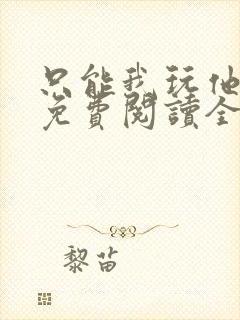 只能我玩他
免費閱讀全
黎苗